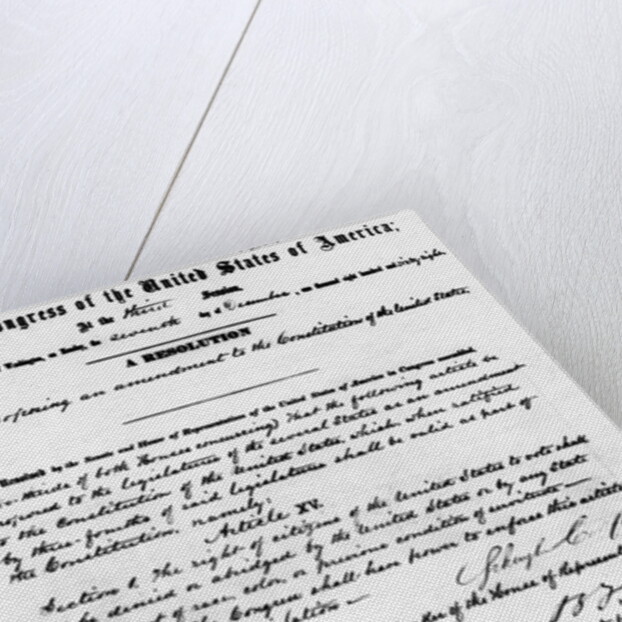 ongress of the United States of America;
At the third Session,
Washington, on Monday, the seventh day of December, one thousand eight hundred and sixty-eight.
A RESOLUTION
oposing an amendment to the Constitution of the United States.
Resolved by the Senate and House of Representatives of the United States of America in Congress assembled,
o-thirds of both Houses concurring) That the following article be
roposed to the legislatures of the several States as an amendment
to the Constitution of the United States, which, when ratified
by three-fourths of said legislatures shall be valid as part of
the Constitution, namely:
Article XV.
Section 1. The right of citizens of the United States to vote shall
be denied or abridged by the United States or by any State
of race, color, or previous condition of servitude—
Congress shall have power to enforce this article
lation—
Schuyler C
of the House of Represent